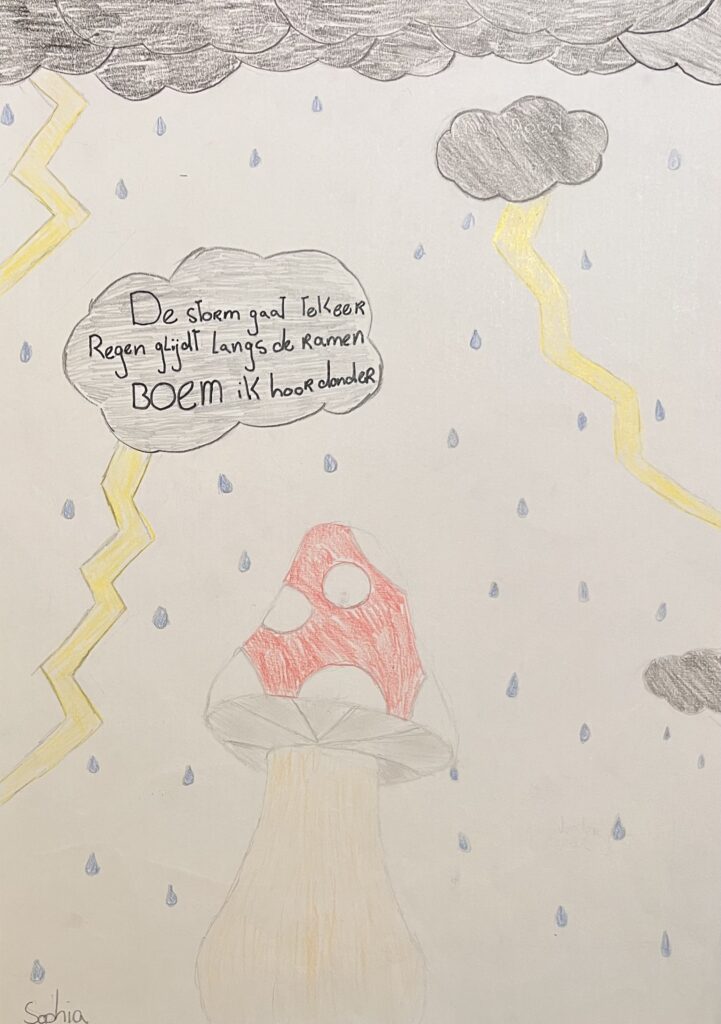 De storm gaat tekeer
Regen glijdt langs de ramen
BOEM ik hoor donder
Sophia